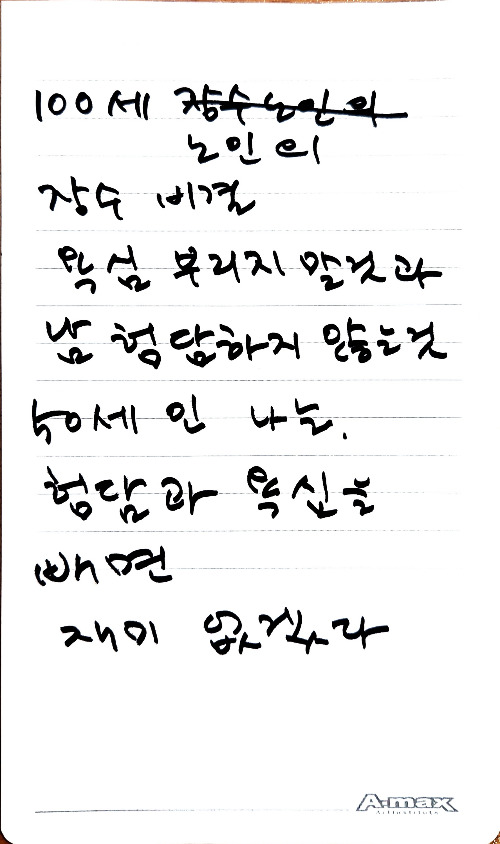 100세 장수노인의
노인의
장수 비결
욕심 부리지 말것과
남 험담하지 않는것
50세 인 나는.
험담과 욕심을
빼면
재미 없겠다
A-max